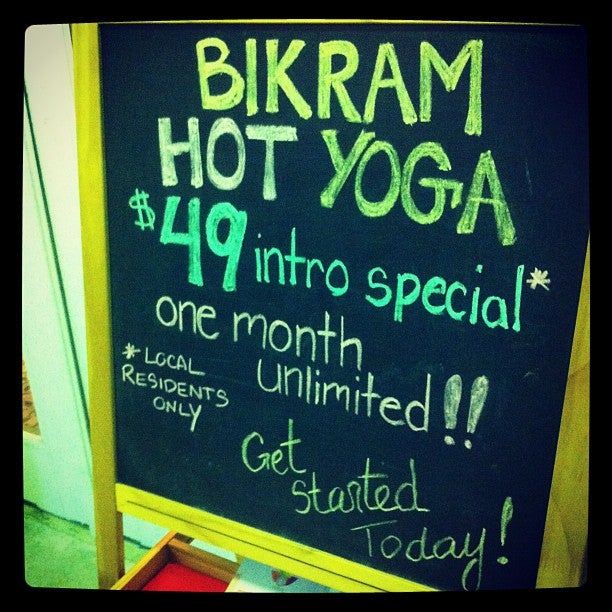 BIKRAM
HOT YOGA
$49 intro special*
one month
unlimited!!
*LOCAL
RESIDENTS
ONLY
Get
started
Today!